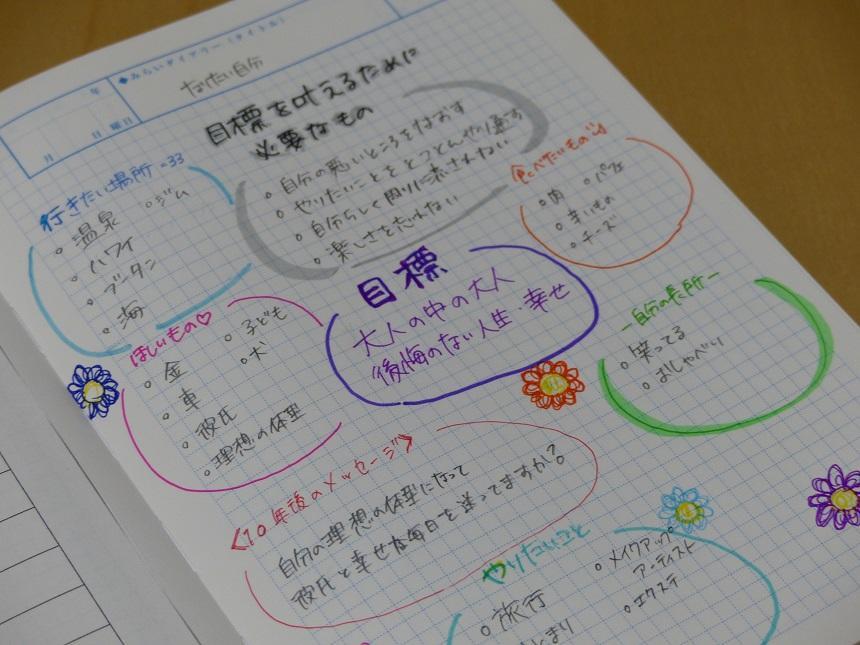 年
月
日
曜日
◆みらいダイアリー(タイトル)
なりたい自分
目標を叶えるために
必要なもの
。自分の悪いところをなおす
。やりたいことをとことんやり通す
。自分らしく周りに流されない
。楽しさを忘れない
行きたい場所
。温泉
。ジム
。ハワイ
。ブータン
。海
食べたいもの
。肉
。パフェ
。辛いもの
。チーズ
目標
大人の中の大人
後悔のない人生・幸せ
ほしいもの♡
。金
。子ども
。車
。犬
。彼氏
。理想の体型
ー自分の長所ー
。笑ってる
。おしゃべり
《10年後のメッセージ》
自分の理想の体型になって
彼氏と幸せな毎日を送ってますか?
やりたいこと
。旅行
。メイクアップ
アーティスト
。エクステ